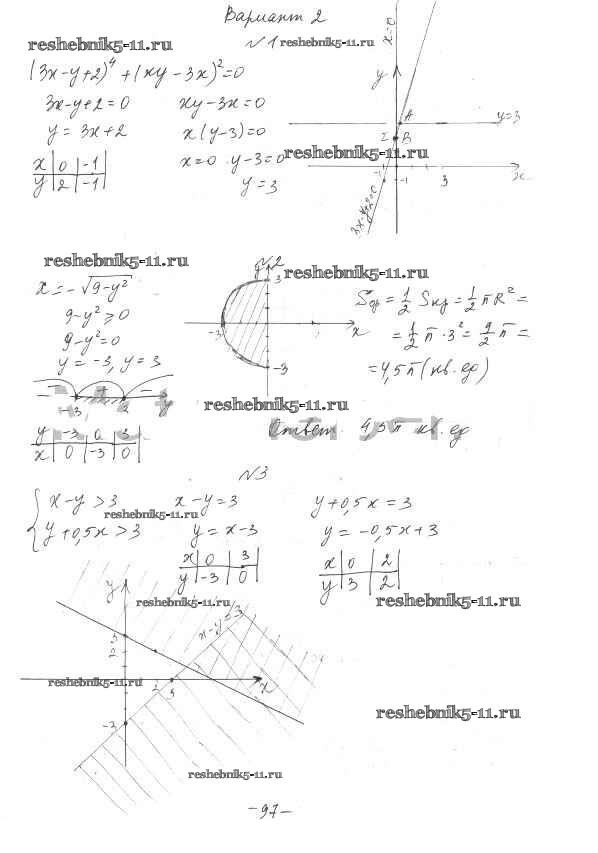 Вариант 2
reshebnik5-11.ru
№1 reshebnik5-11.ru
(3x-y+2)⁴ + (xy-3x)²=0
3x-y+2=0   xy-3x=0
y=3x+2   x(y-3)=0
x | 0 | -1
y | 2 | -1
x=0   y-3=0
y=3
x=0
y
A
y=3
2
B
reshebnik5-11.ru
-1   -1   1   3   x
3x-y+2=0
reshebnik5-11.ru
№2
reshebnik5-11.ru
x=-√9-y²
9-y²≥0
9-y²=0
y=-3, y=3
-   +   -
-3   2   y
y | -3 | 0 | 3
x | 0 | -3 | 0
y
3
-3   x
-3
Sср=1/2 Sкр=1/2 πR²=
=1/2 π·3²=9/2 π=
=4,5π(кв.ед)
reshebnik5-11.ru
Ответ   4,5π кв.ед
№3
x-y>3   x-y=3   y+0,5x=3
reshebnik5-11.ru
y+0,5x>3   y=x-3   y=-0,5x+3
x | 0 | 3
y | -3 | 0
x | 0 | 2
y | 3 | 2
y
reshebnik5-11.ru
reshebnik5-11.ru
x-y=3
3
2
reshebnik5-11.ru
2   3   x
-3
reshebnik5-11.ru
reshebnik5-11.ru
-97-